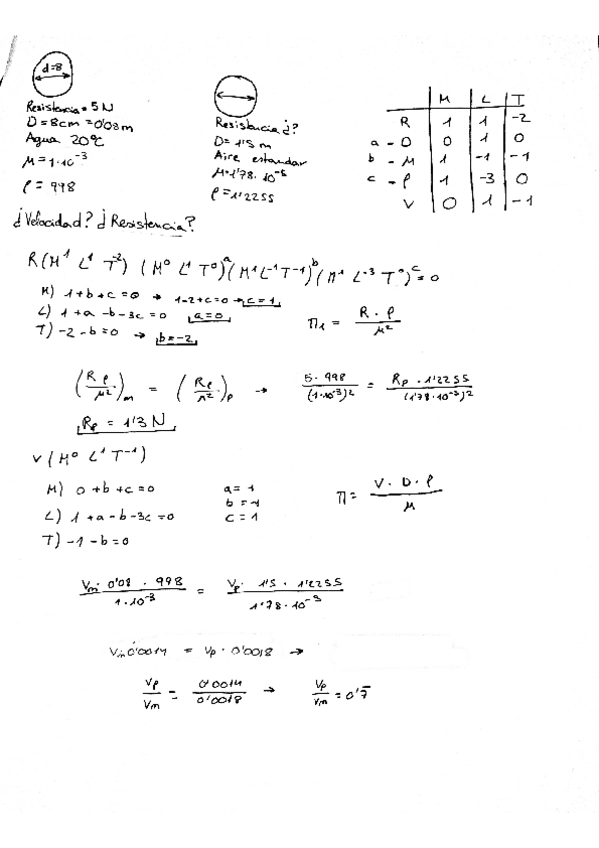 d=8
Resistencia = 5 N
D = 8cm = 0'08m
Agua 20ºC
μ = 1·10⁻³
ρ = 998
Resistencia ¿?
D = 1'5 m
Aire estandar
μ = 1'78 · 10⁻⁵
ρ = 1'2255
M L T
R 1 1 -2
a - D 0 1 0
b - μ 1 -1 -1
c - ρ 1 -3 0
V 0 1 -1
¿Velocidad? ¿Resistencia?
R (M¹ L¹ T⁻²) (M⁰ L¹ T⁰)ᵃ (M¹ L⁻¹ T⁻¹)ᵇ (M¹ L⁻³ T⁰)ᶜ = 0
M) 1+b+c=0 → 1-2+c=0 → c=1
L) 1+a-b-3c=0 a=0
T) -2-b=0 → b=-2
Π₁ = R · ρ / μ²
(R ρ / μ²)m = (R ρ / μ²)p → 5 · 998 / (1·10⁻³)² = Rp · 1'2255 / (1'78·10⁻⁵)²
Rp = 1'3 N
V (M⁰ L¹ T⁻¹)
M) 0+b+c=0 a=1
L) 1+a-b-3c=0 b=-1
T) -1-b=0 c=1
Π = V · D · ρ / μ
Vm · 0'08 · 998 / 1·10⁻³ = Vp · 1'5 · 1'2255 / 1'78·10⁻³
Vm 0'0014 = Vp · 0'0018 →
Vp / Vm = 0'0014 / 0'0018 → Vp / Vm = 0'7